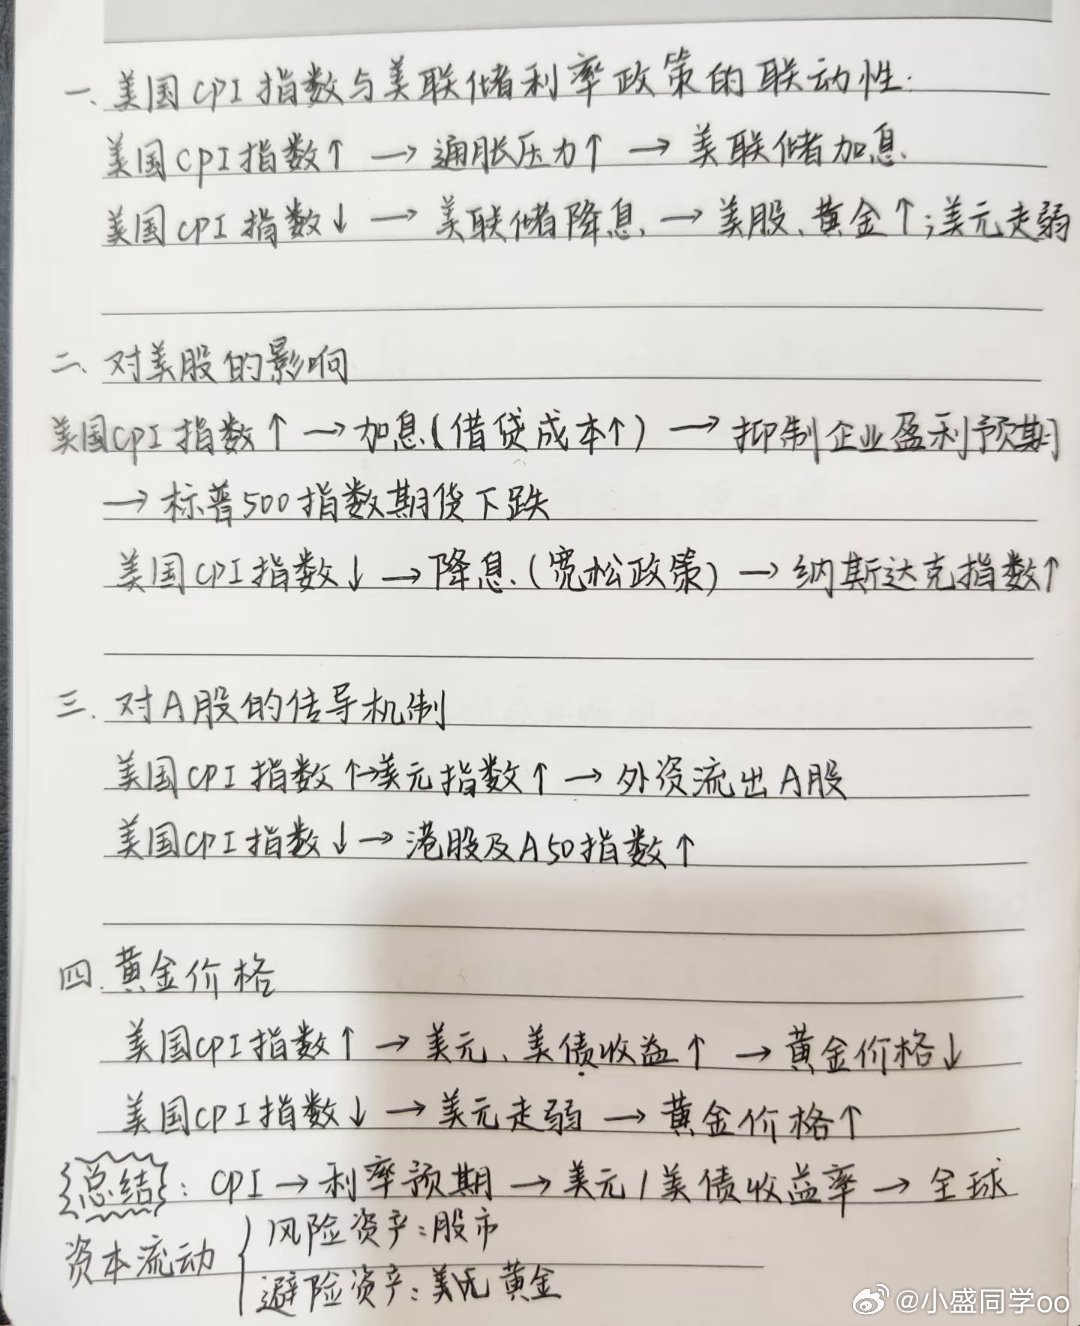 一、美国CPI指数与美联储利率政策的联动性:
美国CPI指数↑ → 通胀压力↑ → 美联储加息.
美国CPI指数↓ → 美联储降息. → 美股、黄金↑;美元走弱
二、对美股的影响
美国CPI指数↑ → 加息(借贷成本↑) → 抑制企业盈利预期
→ 标普500指数期货下跌
美国CPI指数↓ → 降息.(宽松政策) → 纳斯达克指数↑
三、对A股的传导机制
美国CPI指数↑→美元指数↑ → 外资流出A股
美国CPI指数↓ → 港股及A50指数↑
四、黄金价格
美国CPI指数↑ → 美元、美债收益↑ → 黄金价格↓
美国CPI指数↓ → 美元走弱 → 黄金价格↑
总结: CPI → 利率预期 → 美元/美债收益率 → 全球
资本流动 { 风险资产:股市
避险资产:美元 黄金
@小盛同学oo